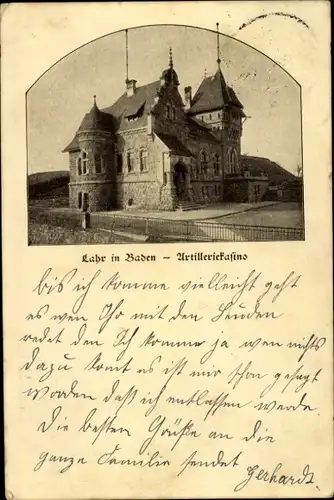 Lahr in Baden – Artilleriekasino
bis ich komme vielleicht geht
es wen Ihr mit den Leuden
redet den Ich komme ja wen nichts
dazu komt es ist mir schon gesagt
worden dass ich entlassen werde
Die besten Grüße an die
ganze Familie sendet Gerhardt.